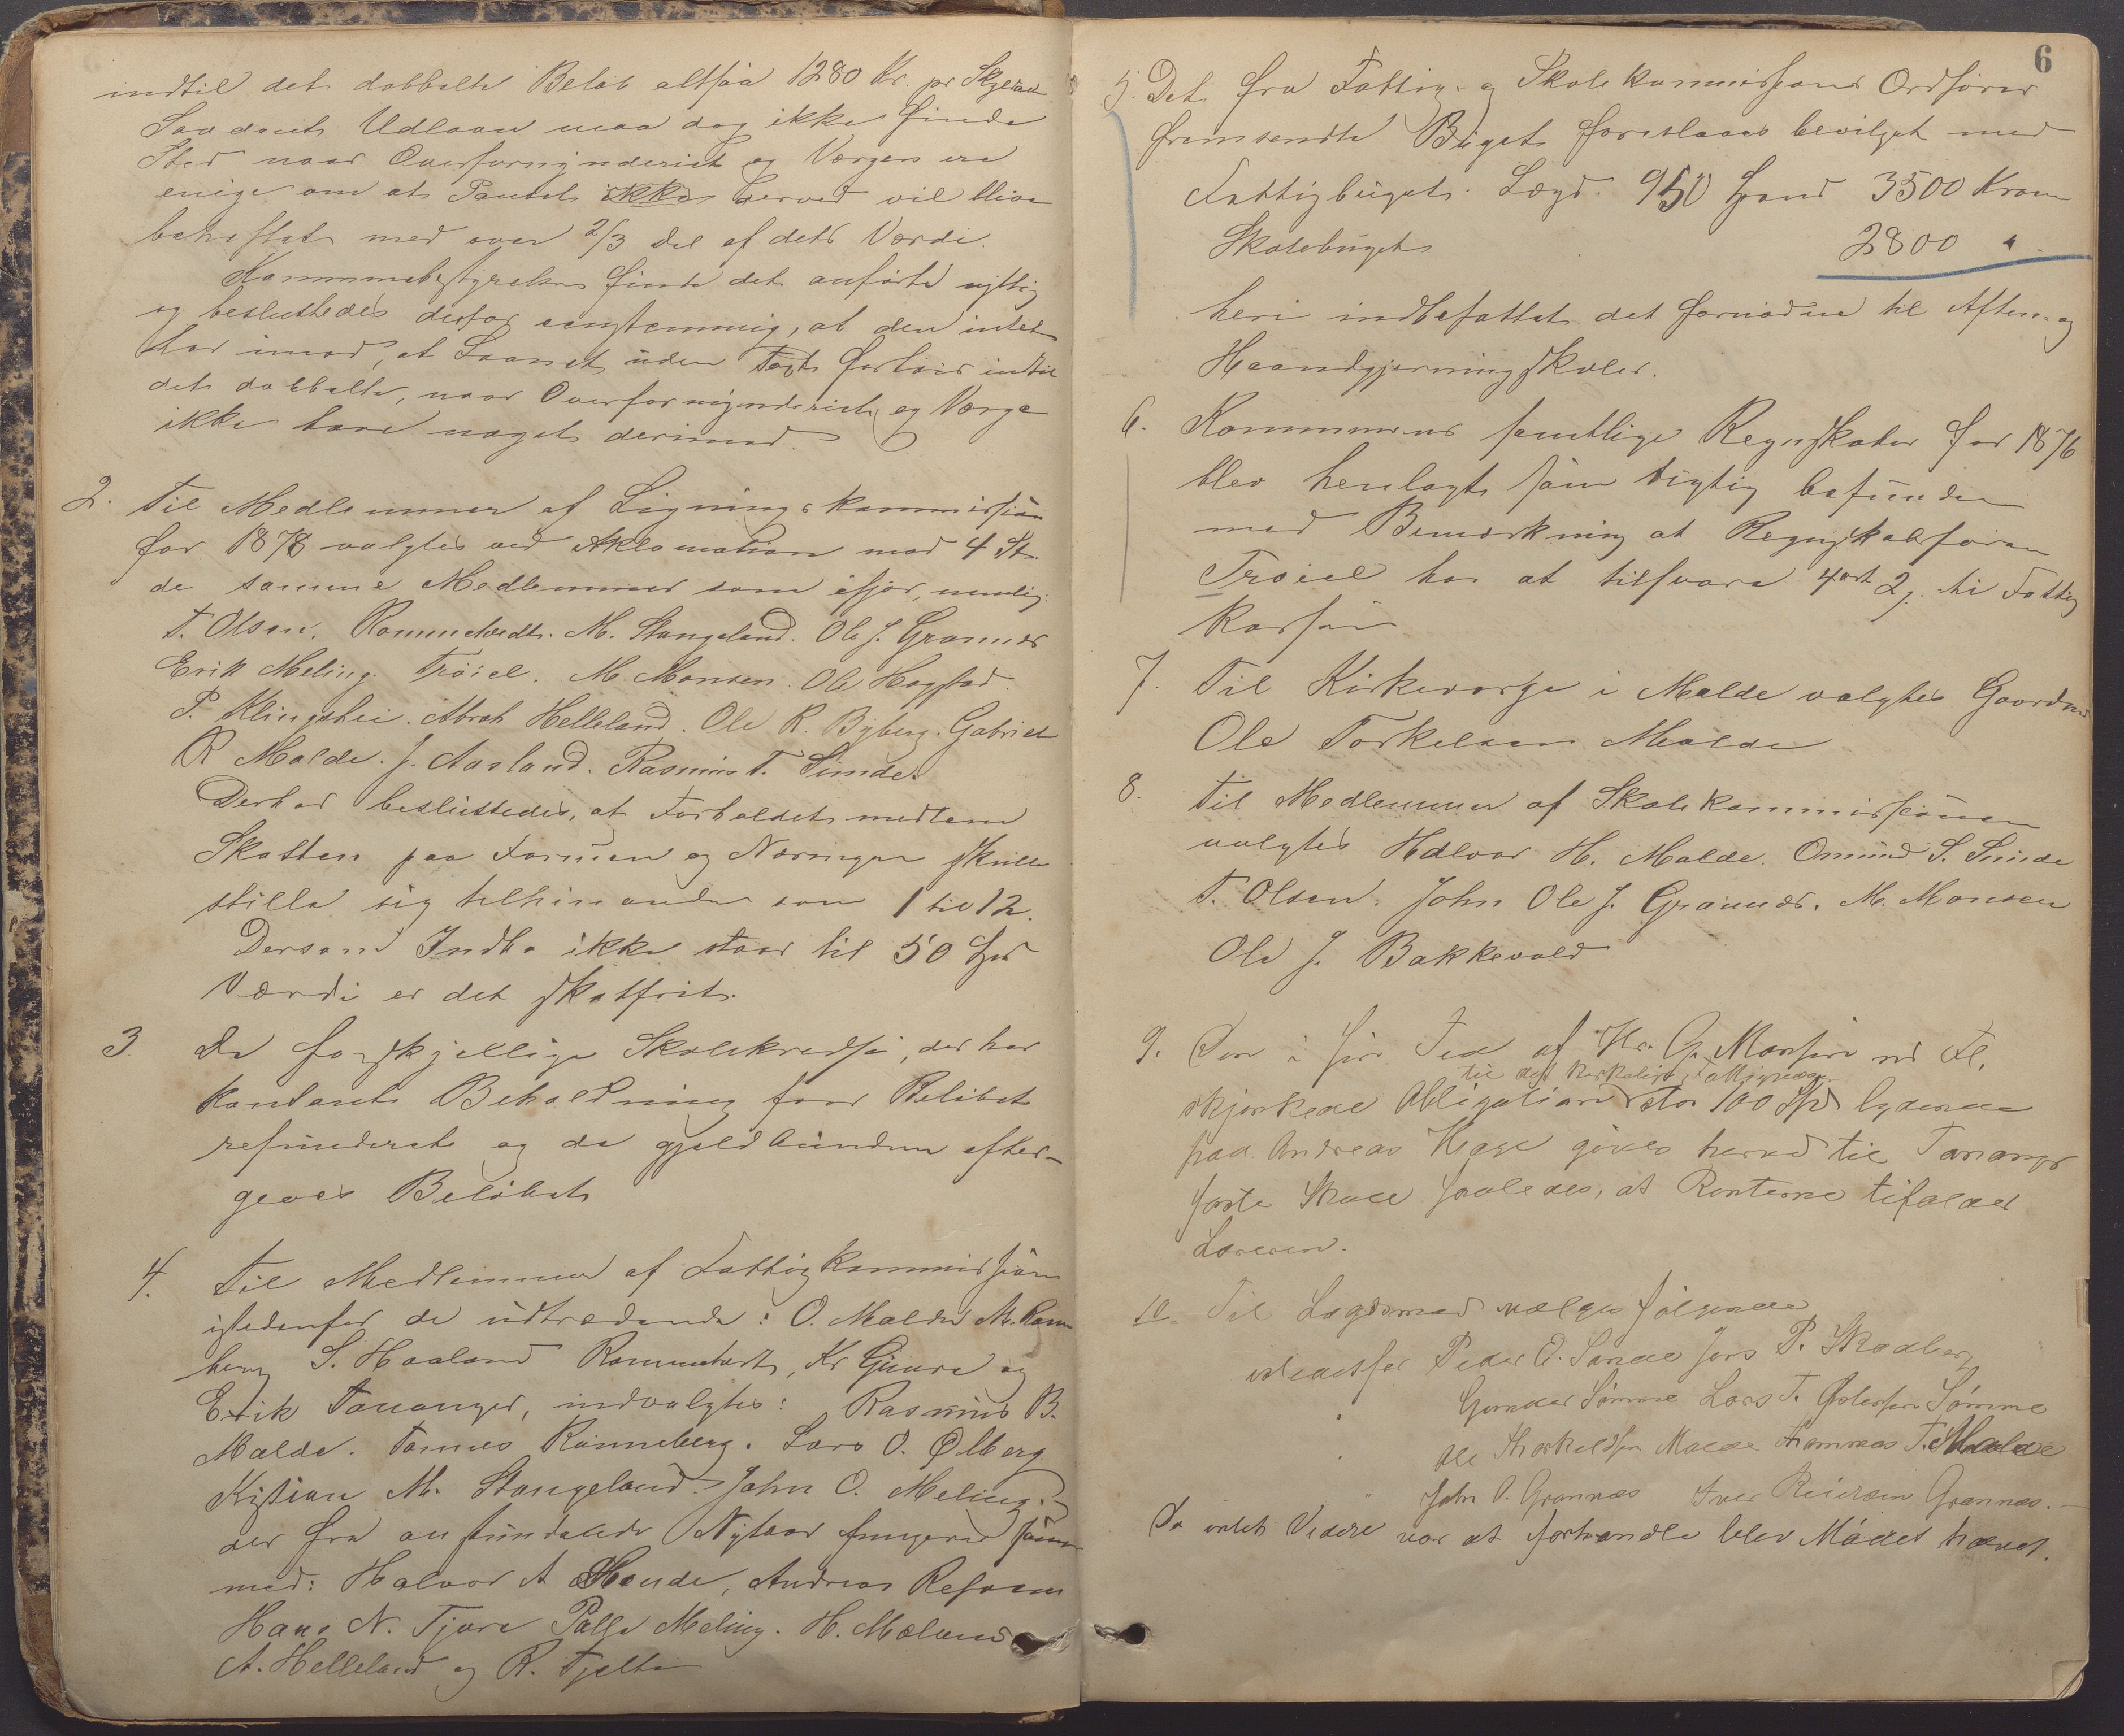 indtil det dobbelte Beløb altsaa 1280 Kr. pr Skyldal
Saadant Udlaan maa dog ikke finde
Sted naar Overformynderiet og Værgen ere
enige om at Pantet ikke derved vil blive
beheftet med over 2/3 Del af dets Værdi.
Kommunebestyrelsen finde det anførte nyttig
og besluttedes derfor eenstemmig, at den intet
har imod, at Laanet uden Taxt forhøies indtil
det dobbelte, naar Overformynderiet og Værge
ikke have noget derimod.
2. Til Medlemmer af Ligningskommissionen
for 1878 valgtes ved Aklamation mod 4 St.
de samme Medlemmer som ifjor, nemlig:
T. Olsen. Rommetvedt. M. Stangeland. Ole J. Grannes
Erik Meling. Trøiel. M. Monsen. Ole Hogstad.
P. Klingshei. Abrah Helleland. Ole R. Byberg. Gabriel
R Malde. J. Aasland. Rasmus T. Sunde.
Derhos besluttedes, at Forholdet mellem
Skatten paa Formuen og Næringen skulle
stille sig tilhinanden som 1 til 12.
Dersom Indbo ikke staar til 50 Spd
Værdi er det skatfrit.
3. De forskjellige Skolekredse, der har
kontant Beholdning faar Beløbet
refunderet og de gjeldbundne efter-
gives Beløbet
4. Til Medlemmer af Fattigkommissionen
istedenfor de udtrædende: O. Malde M. Ranne
berg S. Haaland Rommetvedt, Kr Gimre og
Erik Tananger, indvalgtes: Rasmus B.
Malde. Tønnes Ranneberg. Lars O. Ølberg
Kistian M. Stangeland. John O. Meling.
der fra anstundende Nytaar fungerer sammen
med: Halvor A Hende, Andreas Refsnes
Hans N. Tjora Palle Meling. H. Mæland
A. Helleland og R. Tjelta
6
5. Det fra Fattig- og Skolekommissionens Ordfører
fremsendte Büget foreslaaes bevilget med
Fattigbüget. Lægd. 950 Spand 3500 Kroner
Skolebüget 2800 "
heri indbefattet det fornødne til Aften- og
Haandgjerningskoler.
6. Kommunens samtlige Regnskaber for 1876
blev henlagt som rigtig befunden
med Bemærkning at Regnskabsføren
Trøiel har at tilsvare 4 ort 2 s. til Fattig
kassen
7. Til Kirkeværge i Malde valgtes Gaardm
Ole Torkelsen Malde
8. Til Medlemmer af Skolekommissionen
valgtes Halvor H. Malde. Omünd S. Sunde
T. Olsen. John Ole J. Grannes. M. Monsen
Ole J. Bakkevold
9. Den i sin Tid af Hr. G. Monsen
til det kirkelige Fattigvæsen
skjenkede Obligation stor 100 Spd lydende
paa Andreas Hage gives herved til Tananger
faste Skole saaledes, at Renterne tifalder
Læreren.
10. Til Lagdsmænd vælges følgende
istedetfor Peder O. Sande Jens P. Skadberg
" Gunder Sømme Lars T. Østensen Sømme
" Ole Thorkeldsen Malde Thommas T. Malde
" John O. Grannæs Iver Reiersen Grannæs.
Da intet Videre var at forhandle blev Mødet hævet.